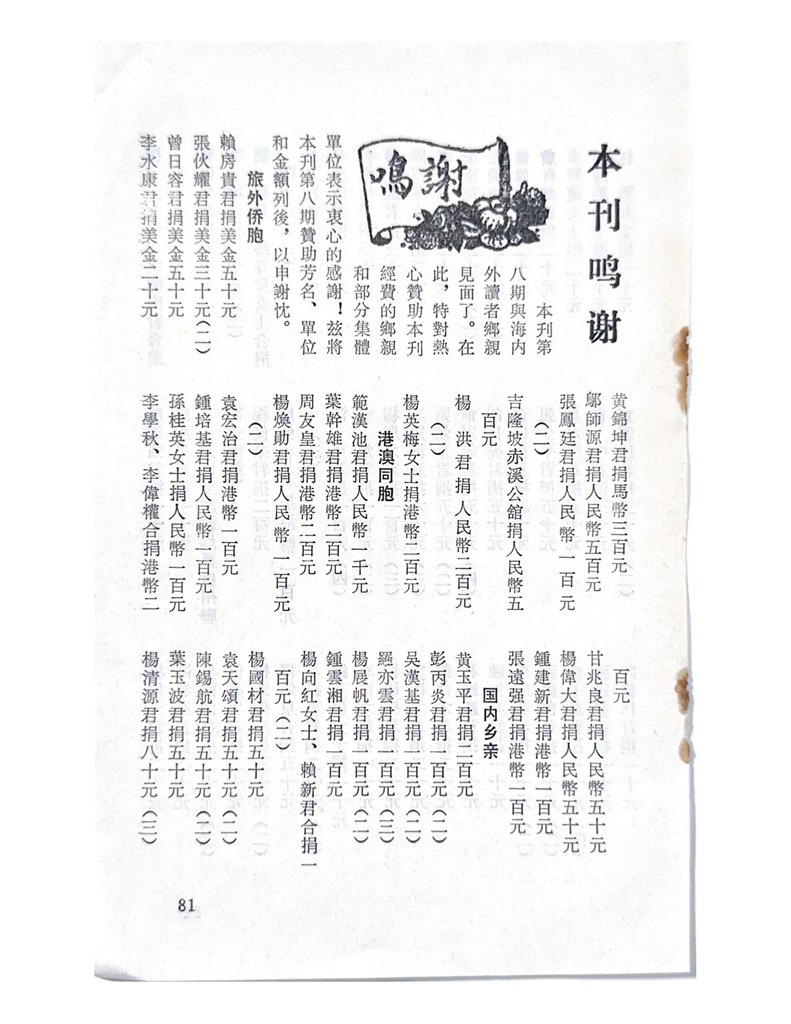 本刊鸣谢
鳴謝
本刊第
八期與海内
外讀者鄉親
見面了。在
此,特對熱
心贊助本刊
經費的鄉親
和部分集體
單位表示衷心的感謝!兹將
本刊第八期贊助芳名、單位
和金額列後,以申謝忱。
旅外侨胞
賴房貴君捐美金五十元
張伙耀君捐美金三十元(二)
曾日容君捐美金五十元
李水康君捐美金二十元
黄錦坤君捐馬幣三百元
鄔師源君捐人民幣五百元
張鳳廷君捐人民幣一百元
(二)
吉隆坡赤溪公館捐人民幣五
百元
楊 洪君捐人民幣二百元
(二)
楊英梅女士捐港幣二百元
港澳同胞
範漢池君捐人民幣一千元
葉幹雄君捐港幣二百元
周友皇君捐港幣二百元
楊煥勛君捐人民幣一百元
(二)
袁宏治君捐港幣一百元
鍾培基君捐人民幣一百元
孫桂英女士捐人民幣一百元
李學秋、李偉權合捐港幣二
百元
甘兆良君捐人民幣五十元
楊偉大君捐人民幣五十元
鍾建新君捐港幣一百元
張遠强君捐港幣一百元
国内乡亲
黄玉平君捐二百元
彭丙炎君捐一百元(二)
吴漢基君捐一百元(二)
羅亦雲君捐一百元(三)
楊展帆君捐一百元(二)
鍾雲湘君捐一百元
楊向紅女士、賴新君合捐一
百元(二)
楊國材君捐五十元
袁天頌君捐五十元(二)
陳錫航君捐五十元(二)
葉玉波君捐五十元
楊清源君捐八十元(三)
81